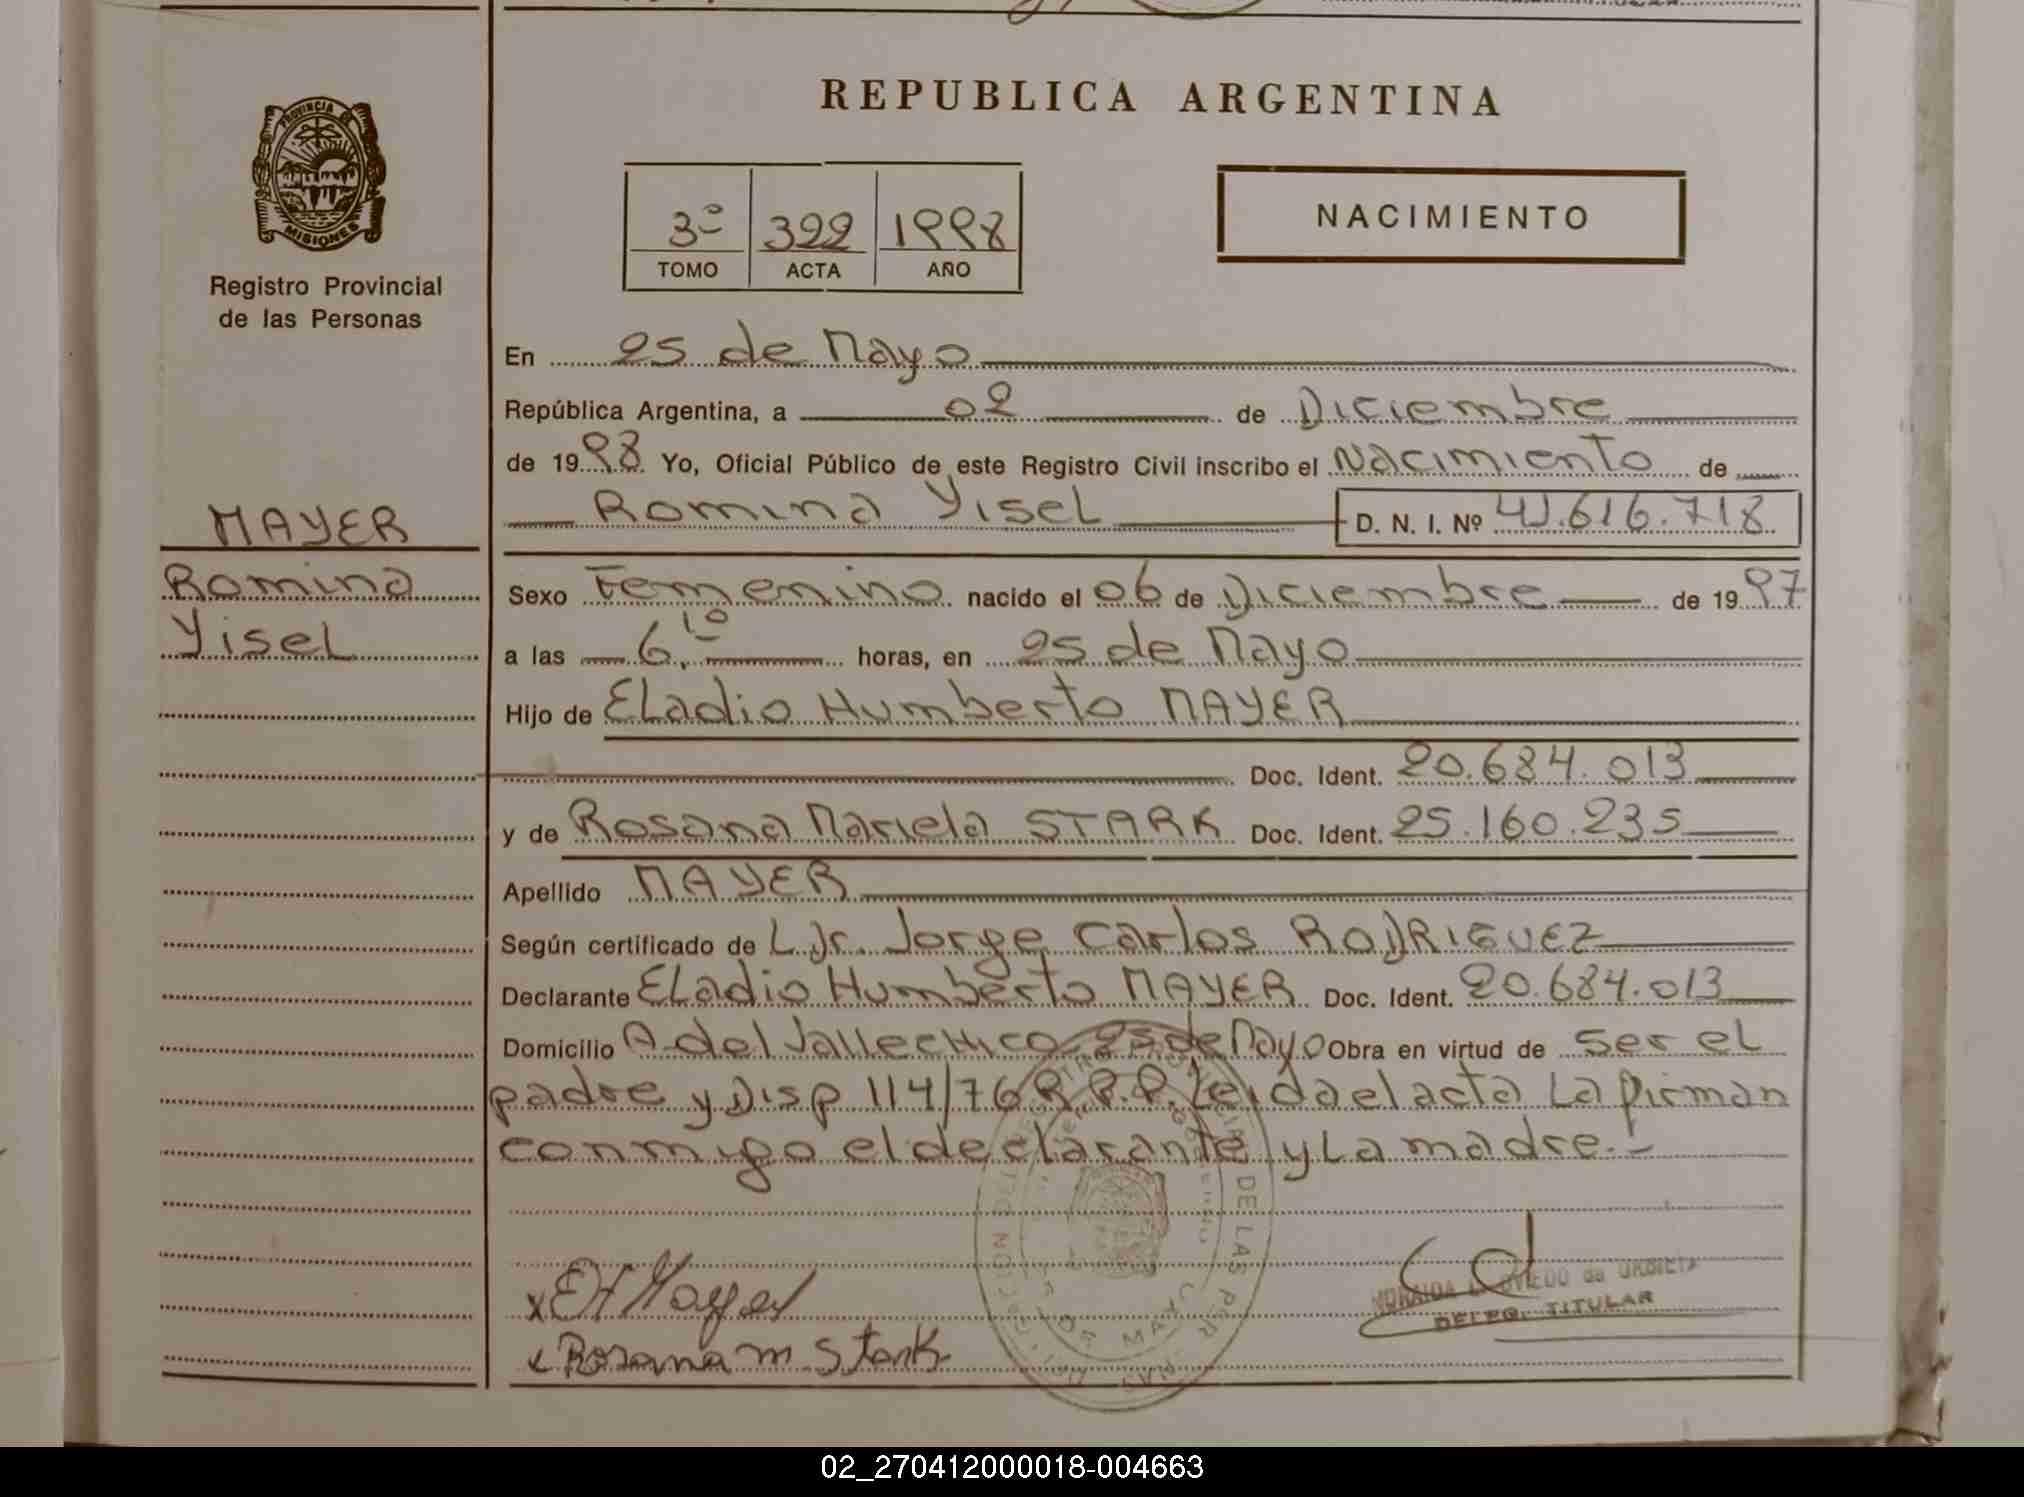 REPUBLICA ARGENTINA
PROVINCIA DE
MISIONES
Registro Provincial
de las Personas
3º 322 1998
TOMO ACTA AÑO
NACIMIENTO
En 25 de Mayo
República Argentina, a 02 de Diciembre
de 1998 Yo, Oficial Público de este Registro Civil inscribo el Nacimiento de
Romina Yisel D. N. I. Nº 41.616.718
MAYER
Romina
Yisel
Sexo Femenino nacido el 06 de Diciembre de 1997
a las 6,10 horas, en 25 de Mayo
Hijo de Eladio Humberto MAYER
Doc. Ident. 20.684.013
y de Rosana Mariela STARK Doc. Ident. 25.160.235
Apellido MAYER
Según certificado de L Dr. Jorge Carlos RODRIGUEZ
Declarante Eladio Humberto MAYER Doc. Ident. 20.684.013
Domicilio A del Valle chico 25 de Mayo Obra en virtud de ser el
padre y Disp 114/76 R.P.P. Leida el acta La firman
conmigo el declarante y La madre.-
x EH Mayer
x Rosana m Stark
OVIEDO de URBIETA
DELEG. TITULAR
02_270412000018-004663